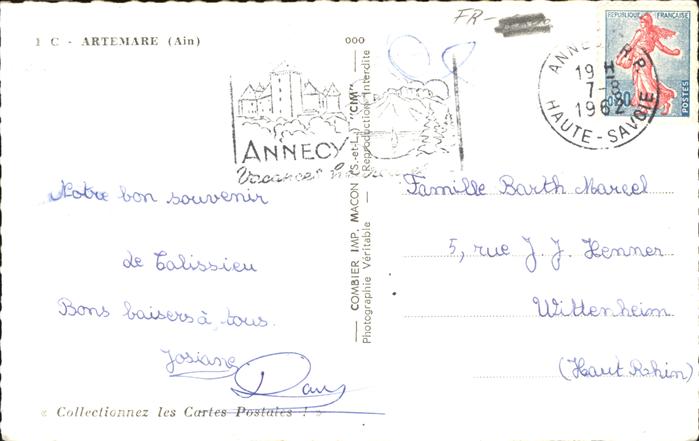 FR-
1 C - ARTEMARE (Ain)
000
RÉPUBLIQUE FRANÇAISE
POSTES
ANNECY R.P.
19 H
7-8
1962
HAUTE-SAVOIE
ANNECY
Vacances
Notre bon souvenir
de Talissieu
Bons baisers à tous.
Josiane
Dany
« Collectionnez les Cartes Postales ! »
COMBIER IMP. MACON (S.-et-L.) "CIM"
Photographie Véritable - Reproduction Interdite
Famille Barth Marcel
5, rue J. J. Henner
Wittenheim
(Haut Rhin)